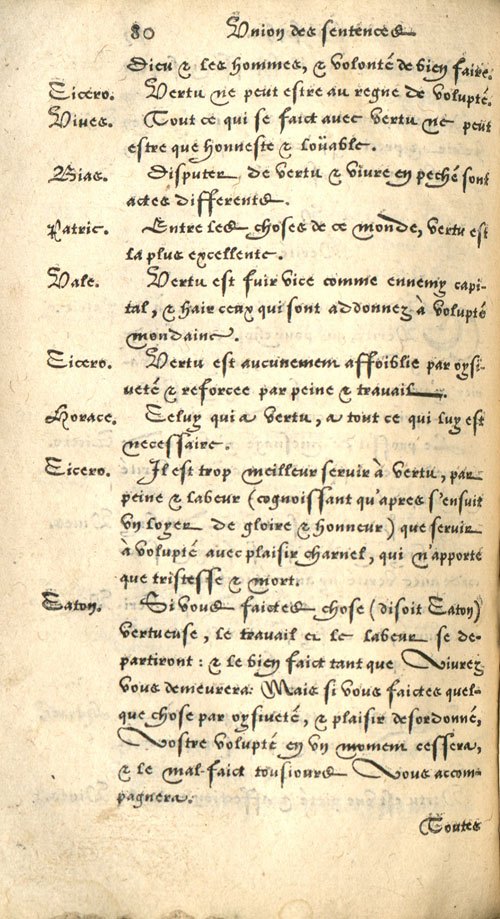 80 Vnion des sentences
Dieu & les hommes, & volonté de bien faire.
Cicero. Vertu ne peut estre au regne de volupté.
Vives. Tout ce qui se faict avec vertu ne peut
estre que honneste & loüable.
Bias. Disputer de vertu & vivre en peché sont
actes differents.
Patric. Entre les choses de ce monde, vertu est
la plus excellente.
Vale. Vertu est fuir vice comme ennemy capi-
tal, & hair ceux qui sont addonnez à volupté
mondaine.
Cicero. Vertu est aucunement affoiblie par oysi-
veté & reforcee par peine & travail.
Horace. Celuy qui a vertu, a tout ce qui luy est
necessaire.
Cicero. Il est trop meilleur servir à vertu, par
peine & labeur (cognoissant qu'apres s'ensuit
vn loyer de gloire & honneur) que servir
à volupté avec plaisir charnel, qui n'apporte
que tristesse & mort.
Caton. Si vous faictes chose (disoit Caton)
vertueuse, le travail et le labeur se de-
partiront: & le bien faict tant que Vivrez
vous demeurera: Mais si vous faictes quel-
que chose par oysiveté, & plaisir desordonné,
Vostre volupté en vn moment cessera,
& le mal-faict tousiours Vous accom-
pagnera.
Toutes